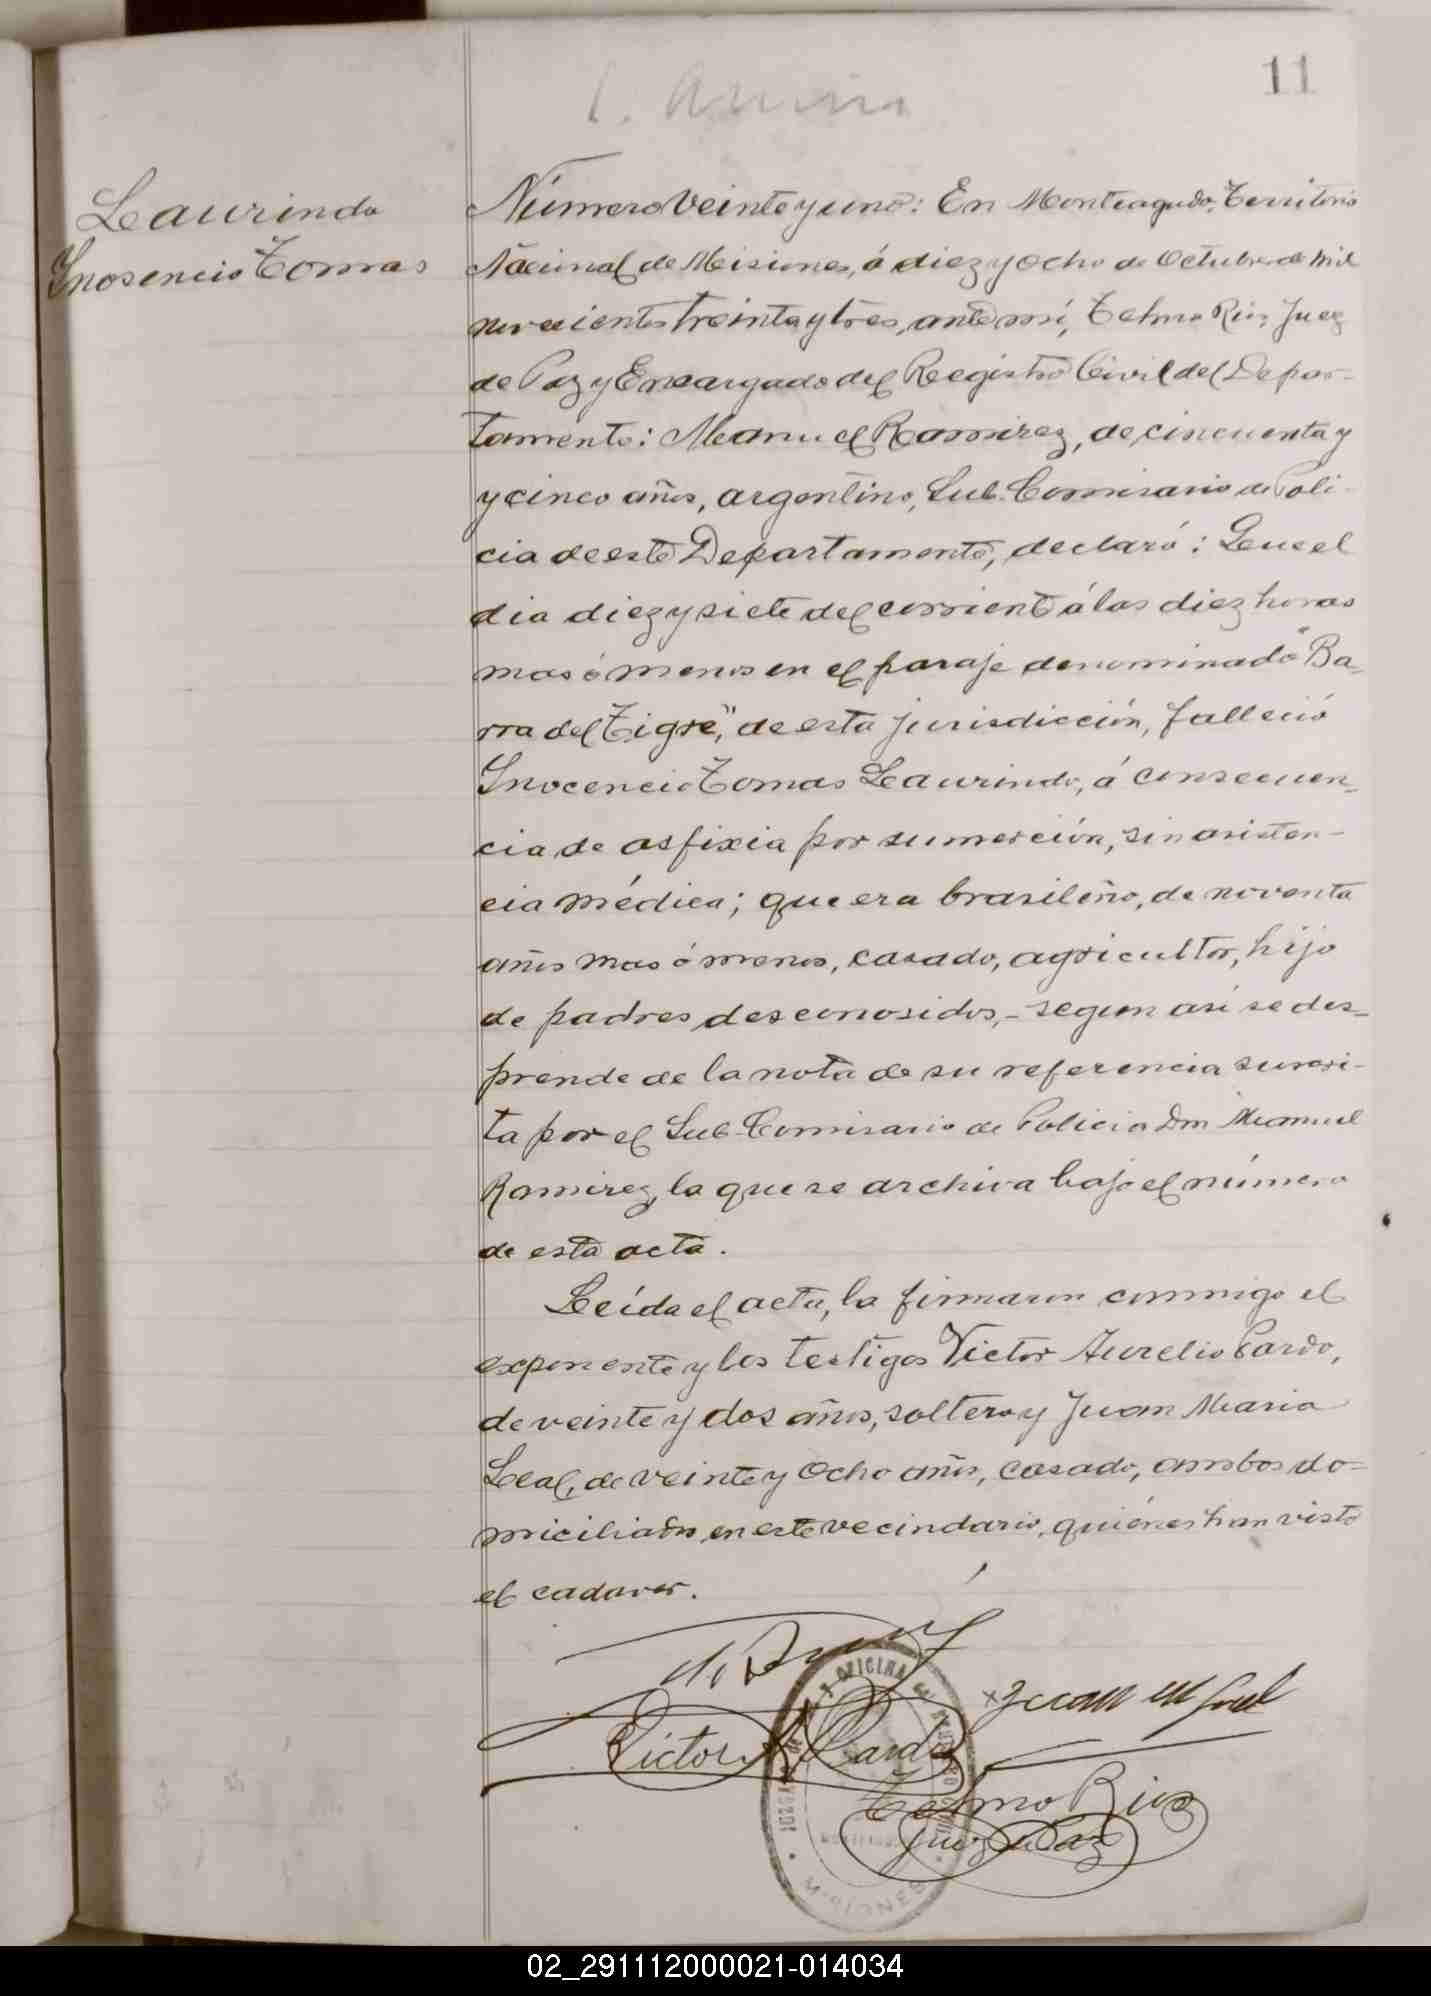 11
Laurindo
Inosencio Tomas
Número veinte y uno: En Monteagudo, Territorio
Nacional de Misiones, á diez y ocho de Octubre de mil
novecientos treinta y tres, ante mí, Telmo Rios, Juez
de Paz y Encargado del Registro Civil del Depar-
tamento: Manuel Ramirez, de cincuenta y
y cinco años, argentino, Sub. Comisario de Poli-
cia de este Departamento, declaró: Que el
dia diez y siete del corriente á las diez horas
mas ó menos en el paraje denominado "Ba-
rra del Tigre", de esta jurisdicción, falleció
Inocencio Tomas Laurindo, á consecuen-
cia de asfixia por sumerción, sin asisten-
cia médica; que era brasileño, de noventa
años mas ó menos, casado, agricultor, hijo
de padres desconosidos,- segun asi se des-
prende de la nota de su referencia suscri-
ta por el Sub-Comisario de Policia Don Manuel
Ramirez, la que se archiva bajo el número
de esta acta.
Leída el acta, la firmaron conmigo el
exponente y los testigos Victor Aurelio Pardo,
de veinte y dos años, soltero y Juan Maria
Leal, de veinte y ocho años, casado, ambos do-
miciliados en este vecindario, quiénes han visto
el cadaver.
Victor A Pardo
Telmo Rios
Juez de Paz
OFICINA
MISIONES
02_291112000021-014034